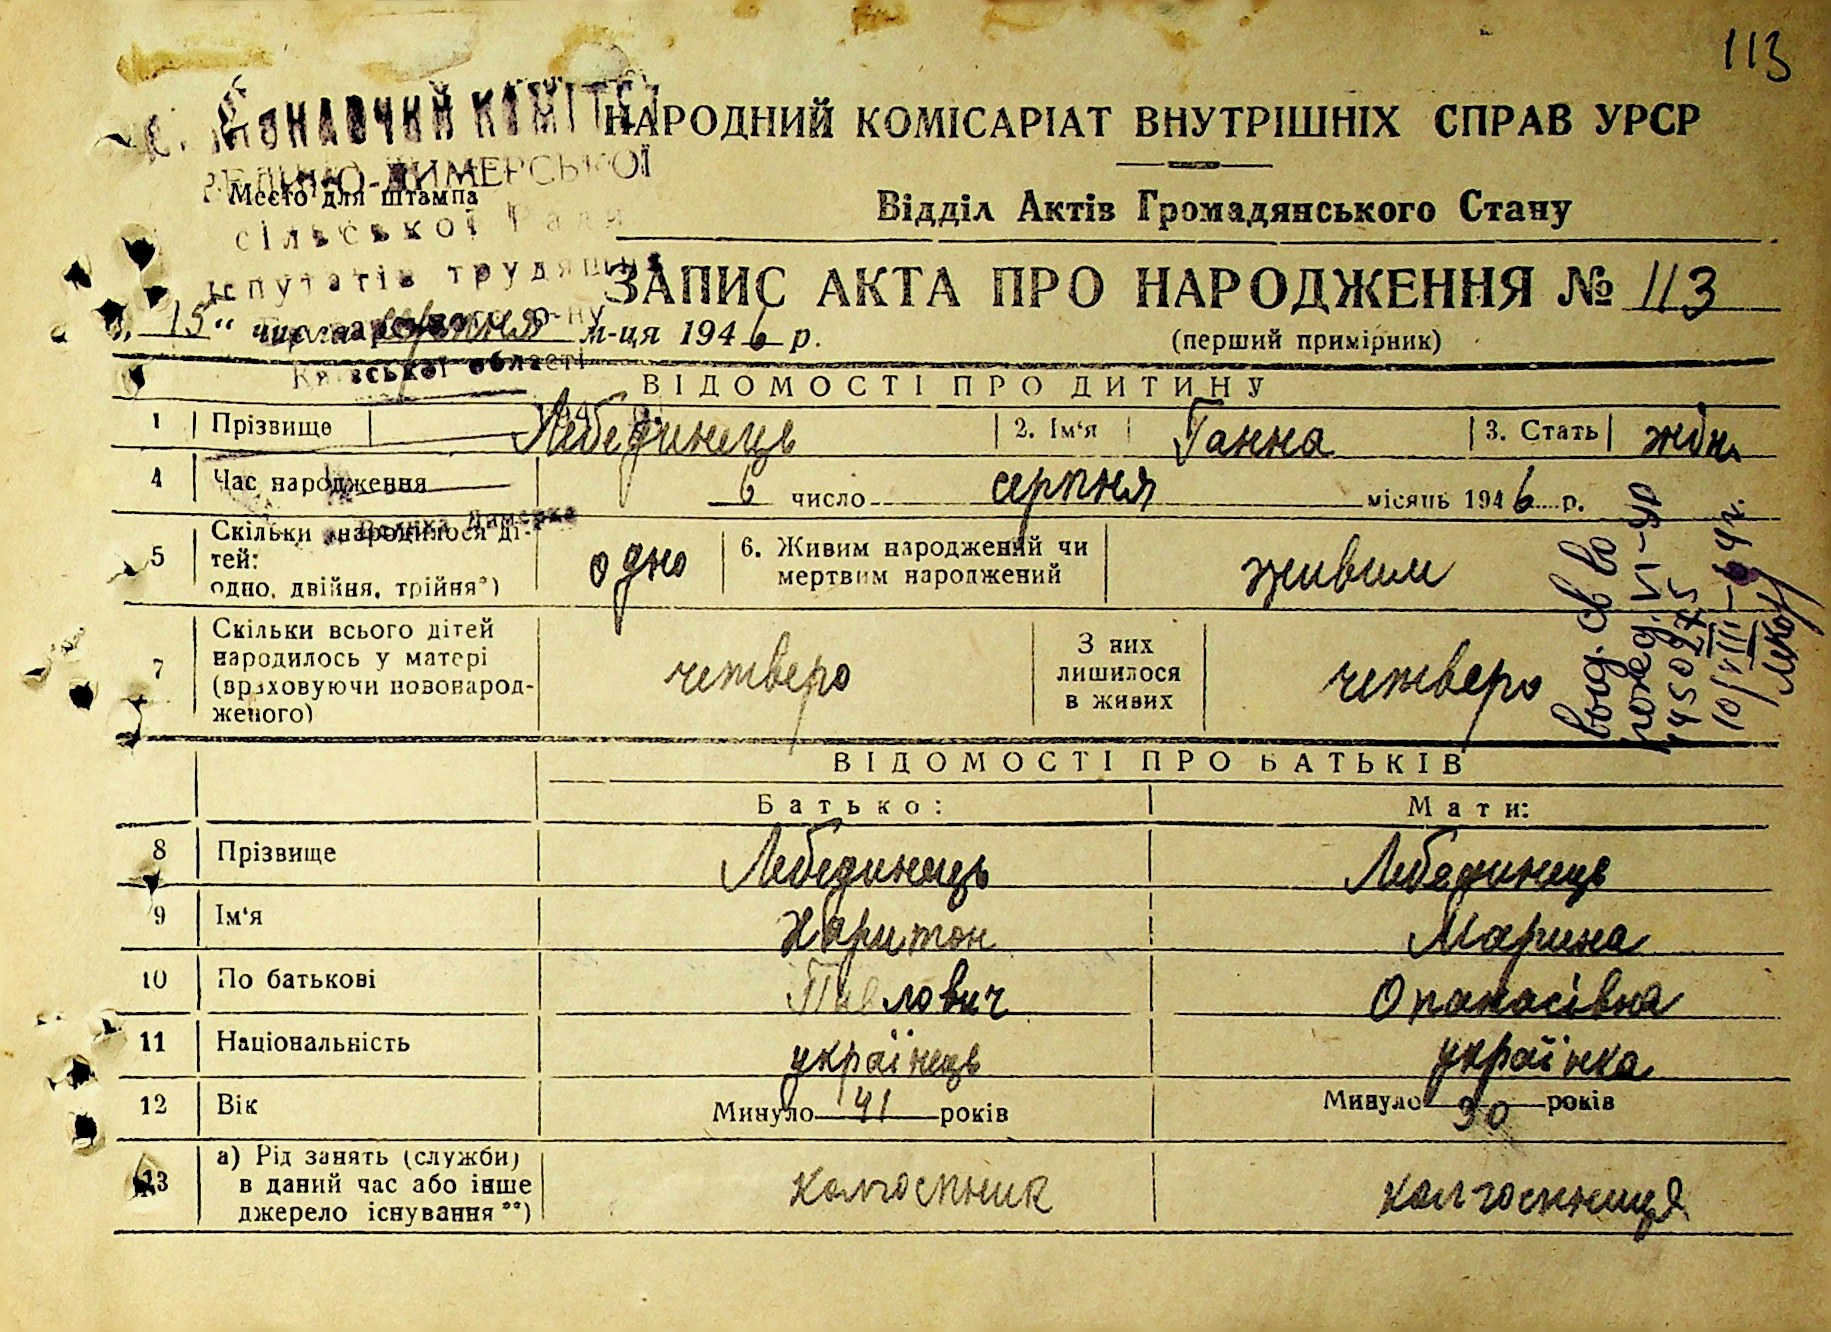 113
ВИКОНАВЧИЙ КОМІТЕТ
НАРОДНИЙ КОМІСАРІАТ ВНУТРІШНІХ СПРАВ УРСР
ВЕЛИКО-ДИМЕРСЬКОЇ
Место для штампа
Відділ Актів Громадянського Стану
сільської Ради
депутатів трудящих
ЗАПИС АКТА ПРО НАРОДЖЕННЯ № 113
„15“ числа серпня м-ця 1946 р.
(перший примірник)
Київської області
ВІДОМОСТІ ПРО ДИТИНУ
1 Прізвище Лебединець 2. Ім'я Ганна 3. Стать жін.
4 Час народження 6 число серпня місяць 1946 р.
с. Велика Димерка
5 Скільки народилося ді-
тей:
одно, двійня, трійня*) одно 6. Живим народжений чи
мертвим народжений живим
7 Скільки всього дітей
народилось у матері
(враховуючи новонарод-
женого) четверо З них
лишилося
в живих четверо
выд. св во
4509275
ВІДОМОСТІ ПРО БАТЬКІВ
Батько: Мати:
8 Прізвище Лебединець Лебединець
9 Ім'я Харитон Марина
10 По батькові Павлович Опанасівна
11 Національність українець українка
12 Вік Минуло 41 років Минуло 30 років
13 а) Рід занять (служби)
в даний час або інше
джерело існування **) колгоспник колгоспниця